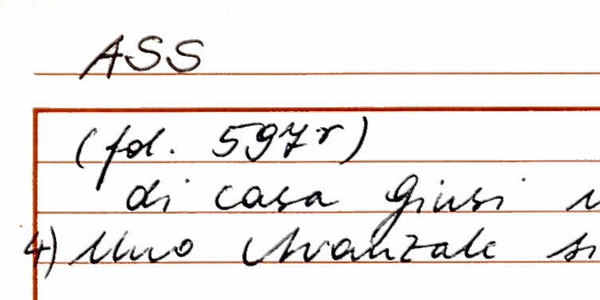 ASS
(fol. 597r)
di casa Giusi
4) Uno Avanzale